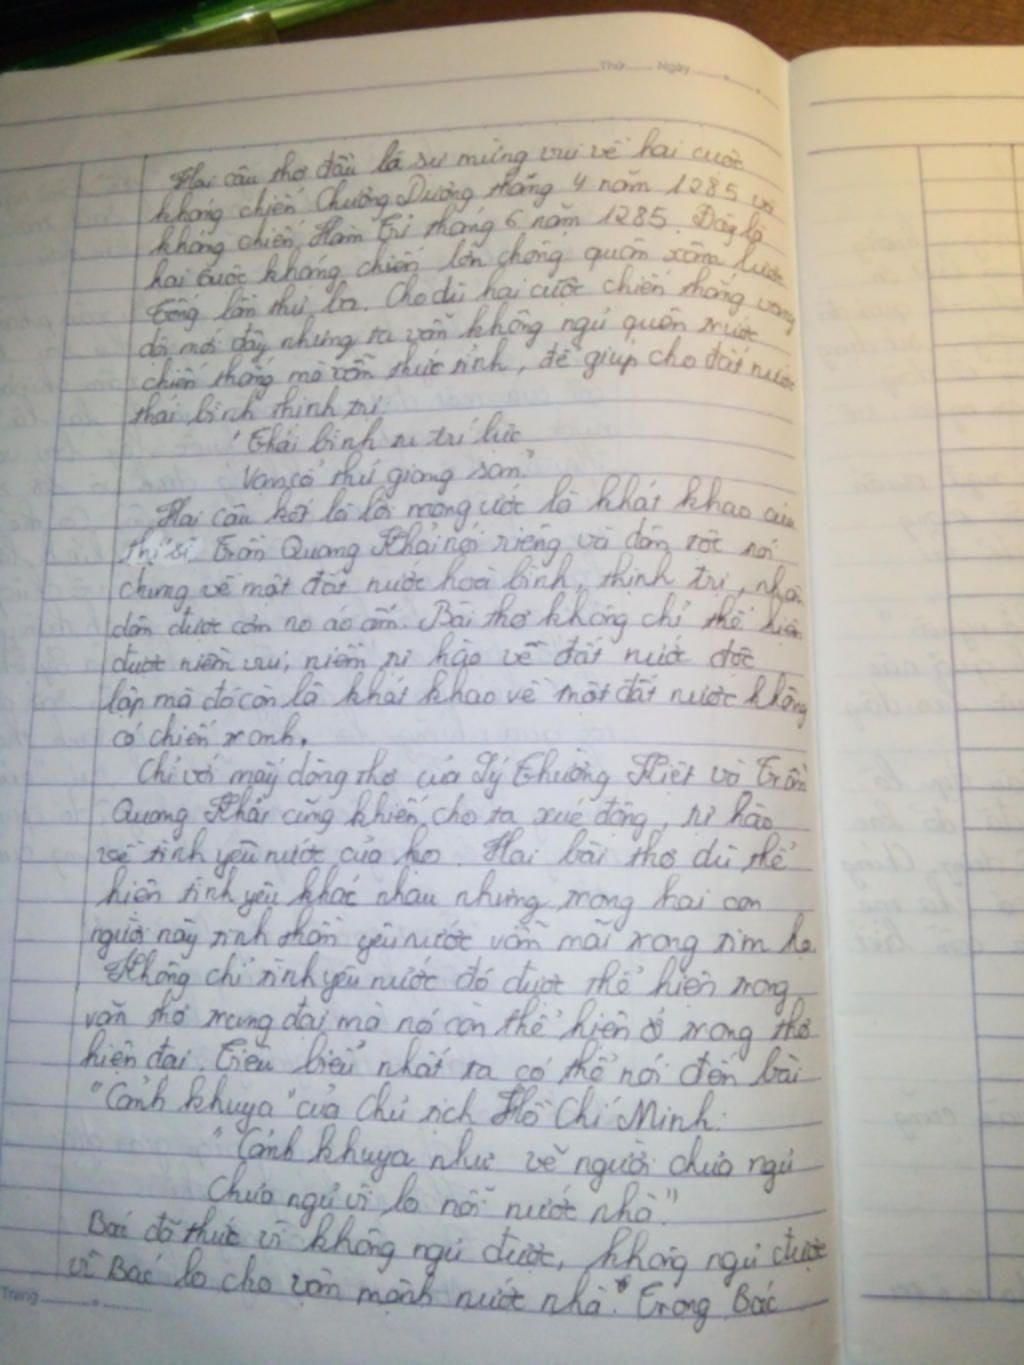 Thứ Ngày
Hai câu thơ đầu là sự mừng vui về hai cuộc
kháng chiến Chương Dương tháng 4 năm 1285 và
kháng chiến Hàm Tử tháng 6 năm 1285. Đây là
hai cuộc kháng chiến lớn chống quân xâm lược
Tống lần thứ ba. Cho dù hai cuộc chiến thắng vang
dội mới đây nhưng ta vẫn không ngủ quên trước
chiến thắng mà vẫn thức tỉnh, để giúp cho đất nước
thái bình thịnh trị.
"Thái bình tu trí lực
Vạn cổ thử giang san"
Hai câu kết là lời mong ước là khát khao của
thi sĩ Trần Quang Khải nói riêng và dân tộc nói
chung về một đất nước hoà bình, thịnh trị, nhân
dân được cơm no áo ấm. Bài thơ không chỉ thể hiện
được niềm vui, niềm tự hào về đất nước độc
lập mà đó còn là khát khao về một đất nước không
có chiến tranh.
Chỉ với mấy dòng thơ của Lý Thường Kiệt và Trần
Quang Khải cũng khiến cho ta xúc động, tự hào
về tình yêu nước của họ. Hai bài thơ dù thể
hiện tình yêu khác nhau nhưng trong hai con
người này tinh thần yêu nước vẫn mãi trong tim họ.
Không chỉ tình yêu nước đó được thể hiện trong
văn thơ trung đại mà nó còn thể hiện ở trong thơ
hiện đại. Tiêu biểu nhất ta có thể nói đến bài
"Cảnh khuya" của Chủ tịch Hồ Chí Minh:
"Cảnh khuya như vẽ người chưa ngủ
Chưa ngủ vì lo nỗi nước nhà."
Bác đã thức vì không ngủ được, không ngủ được
vì Bác lo cho vận mệnh nước nhà. Trong Bác
Trang